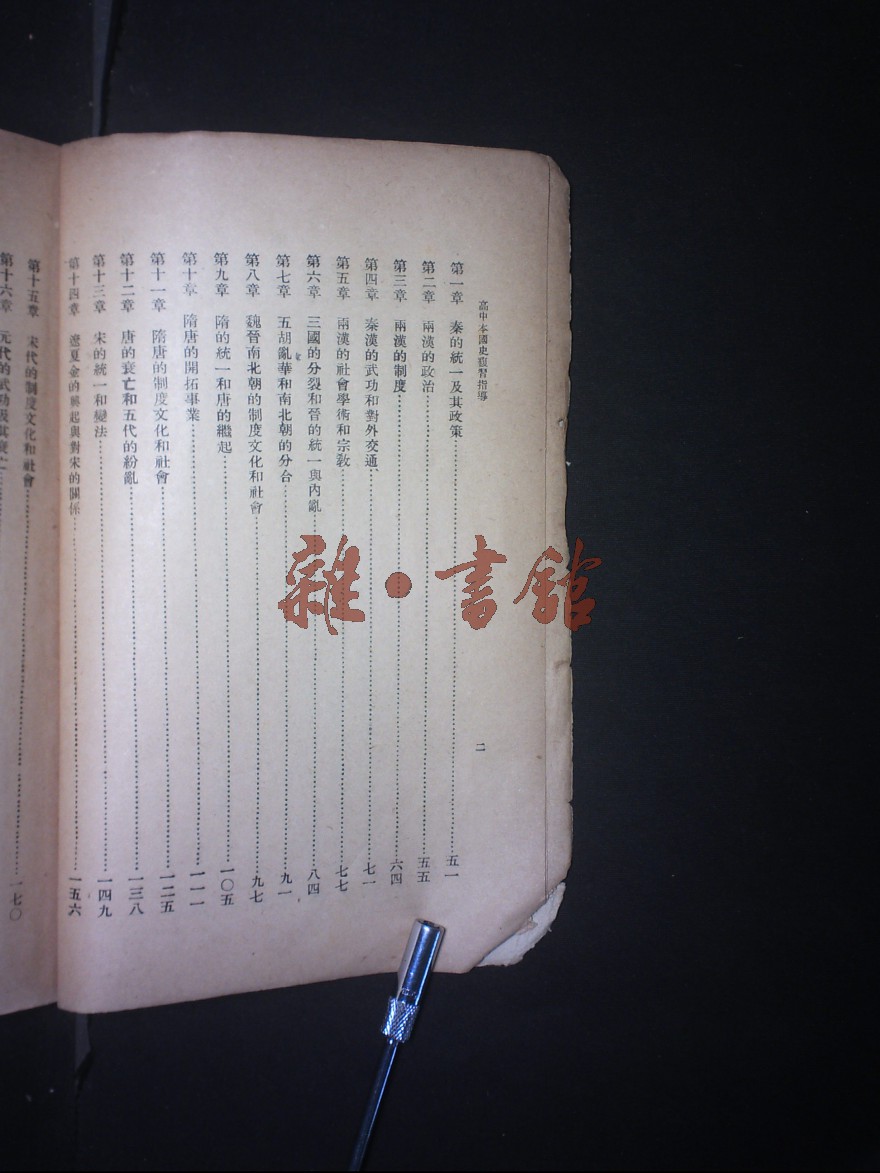 高中本國史複習指導
二
第一章 秦的統一及其政策……五一
第二章 兩漢的政治……五五
第三章 兩漢的制度……六四
第四章 秦漢的武功和對外交通……七一
第五章 兩漢的社會學術和宗教……七七
第六章 三國的分裂和晉的統一與內亂……八四
第七章 五胡亂華和南北朝的分合……九一
第八章 魏晉南北朝的制度文化和社會……九七
第九章 隋的統一和唐的繼起……一〇五
第十章 隋唐的開拓事業……一一一
第十一章 隋唐的制度文化和社會……一二五
第十二章 唐的衰亡和五代的紛亂……一三八
第十三章 宋的統一和變法……一四九
第十四章 遼夏金的興起與對宋的關係……一五六
第十五章 宋代的制度文化和社會……一七〇
第十六章 元代的武功及其衰亡
雜·書館